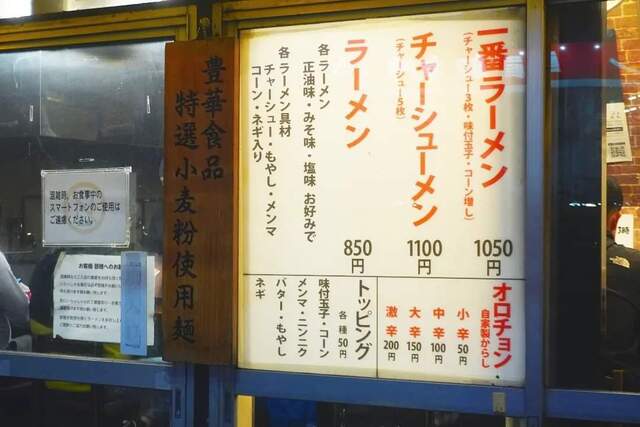 一番ラーメン
(チャーシュー3枚・味付玉子・コーン増し)
1050円
チャーシューメン
(チャーシュー5枚)
1100円
ラーメン
850円
各ラーメン
正油味・みそ味・塩味 お好みで
各ラーメン具材
チャーシュー・もやし・メンマ
コーン・ネギ入り
オロチョン・
自家製からし
小辛 50円
中辛 100円
大辛 150円
激辛 200円
トッピング
各種50円
味付玉子・コーン
メンマ・ニンニク
バター・もやし
ネギ
豊華食品
特選小麦粉使用麺
混雑時、お食事中の
スマートフォンのご使用は
ご遠慮ください。